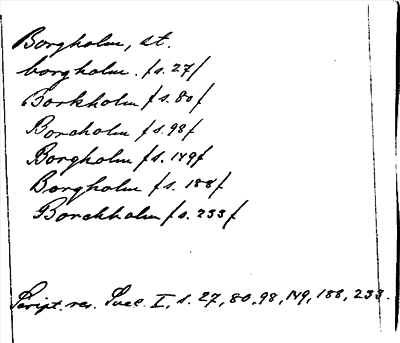 Borgholm, st.
borgholm. /s. 27/
Borkholm /s. 80/
Borcholm /s. 98/
Borgholm /s. 149/
Borgholm /s. 188/
Borckholm /s. 233/
Script. rer. Suec. I, s. 27, 80, 98, 149, 188, 233.